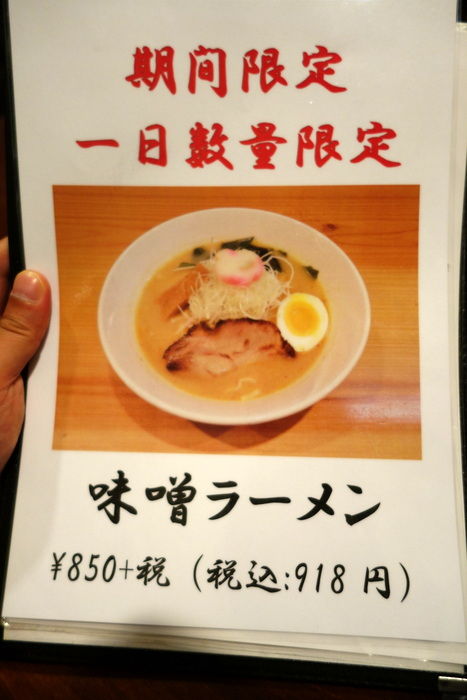 期間限定
一日数量限定
味噌ラーメン
¥850+税 (税込:918 円)